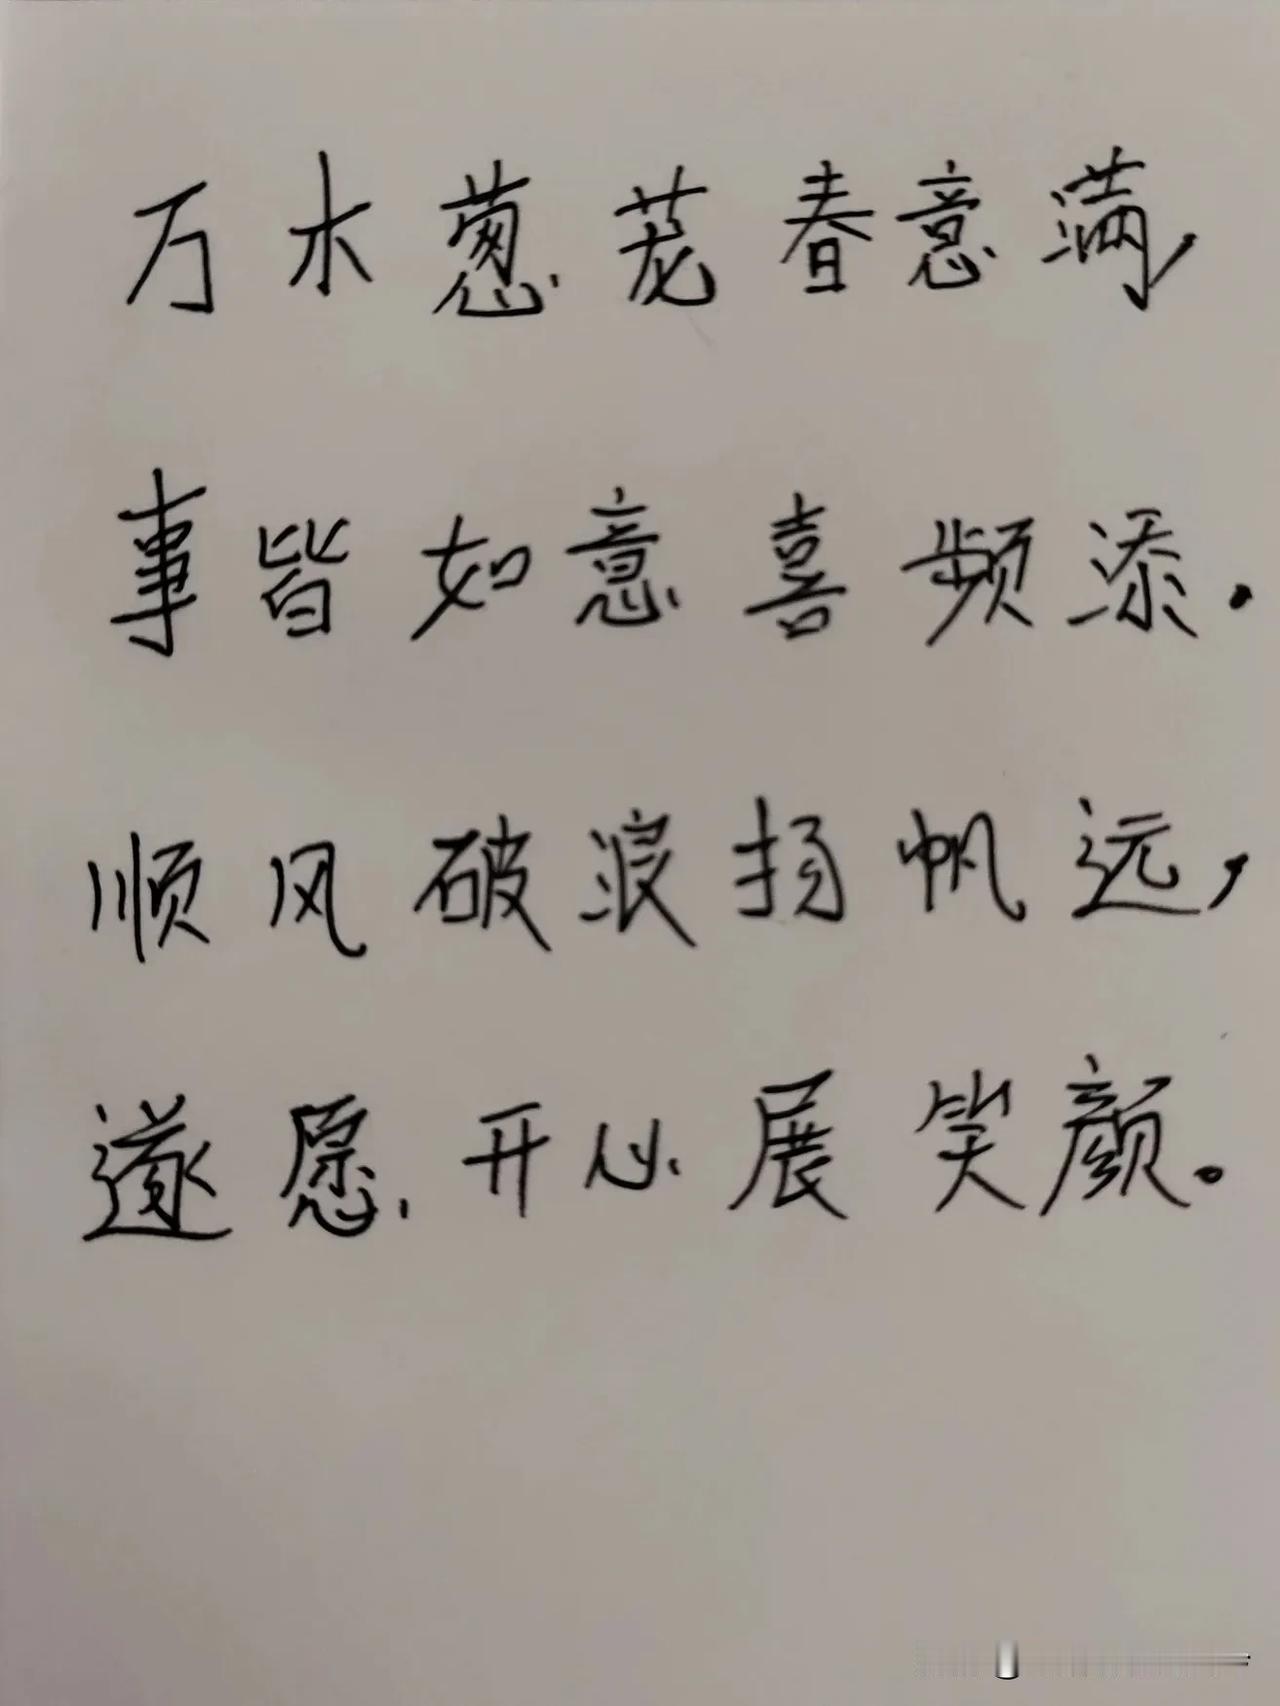 万木葱茏春意满,
事皆如意喜频添.
顺风破浪扬帆远,
遂愿开心展笑颜。